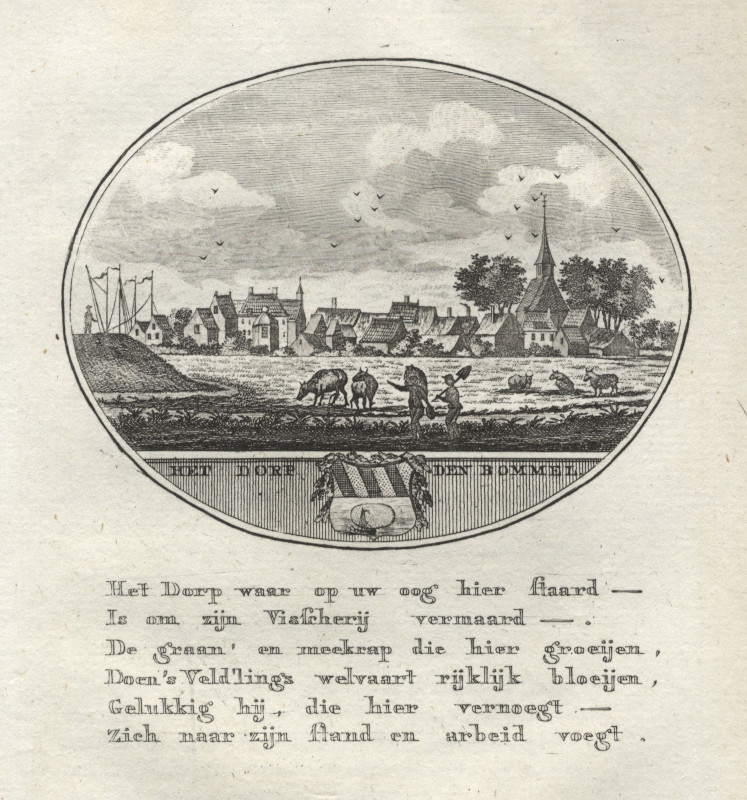 HET DORP DEN BOMMEL.
Het Dorp waar op uw oog hier ſtaard —
Is om zijn Visſcherij vermaard — .
De graan' en meekrap die hier groeijen ,
Doen's Veld'lings welvaart rijklijk bloeijen ,
Gelukkig hij , die hier vernoegt —
Zich naar zijn ſtand en arbeid voegt .